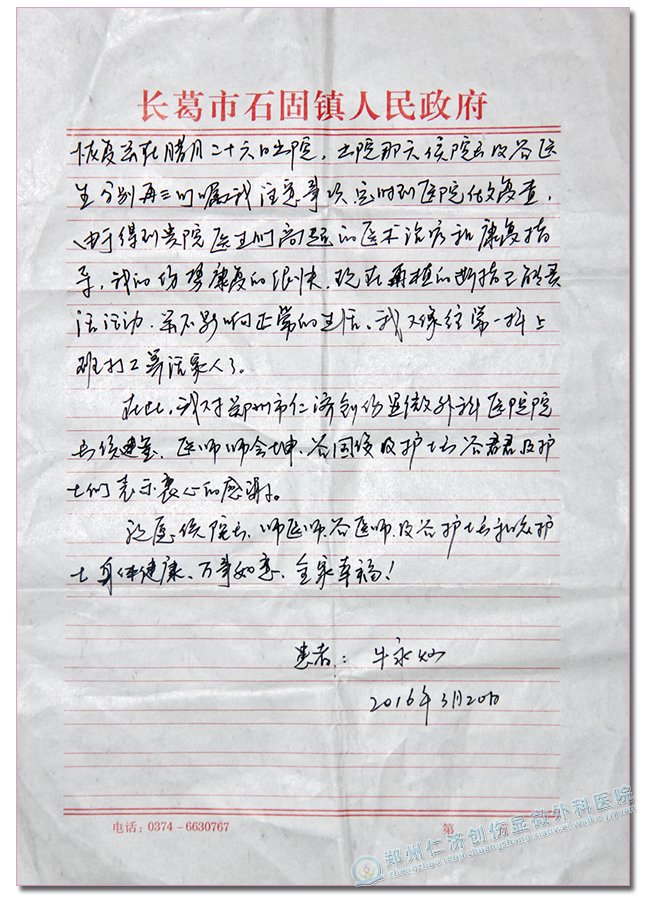 长葛市石固镇人民政府
恢复于腊月二十六日出院，出院那天侯院长及谷医
生分别再三叮嘱我注意事项，定时到医院做复查，
由于得到贵院医生们高超的医术治疗和康复指
导，我的伤势康复的很快，现在再植的断指已能灵
活活动，并不影响正常的生活，我又像往常一样上
班打工养活家人了。
在此，我对郑州市仁济创伤显微外科医院院
长侯建玺、医师师会坤、谷国俊及护士长谷君君及护
士们表示衷心的感谢。
祝愿侯院长、师医师、谷医师、及谷护士长和众护
士身体健康、万事如意、全家幸福！
患者：牛永灿
2016年3月20日
电话：0374-6630767
第 页
郑州仁济创伤显微外科医院